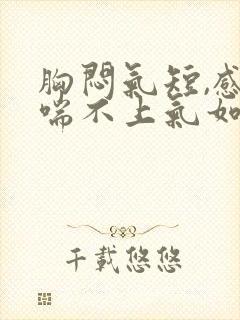 胸悶氣短,感
喘不上氣如
千載悠悠